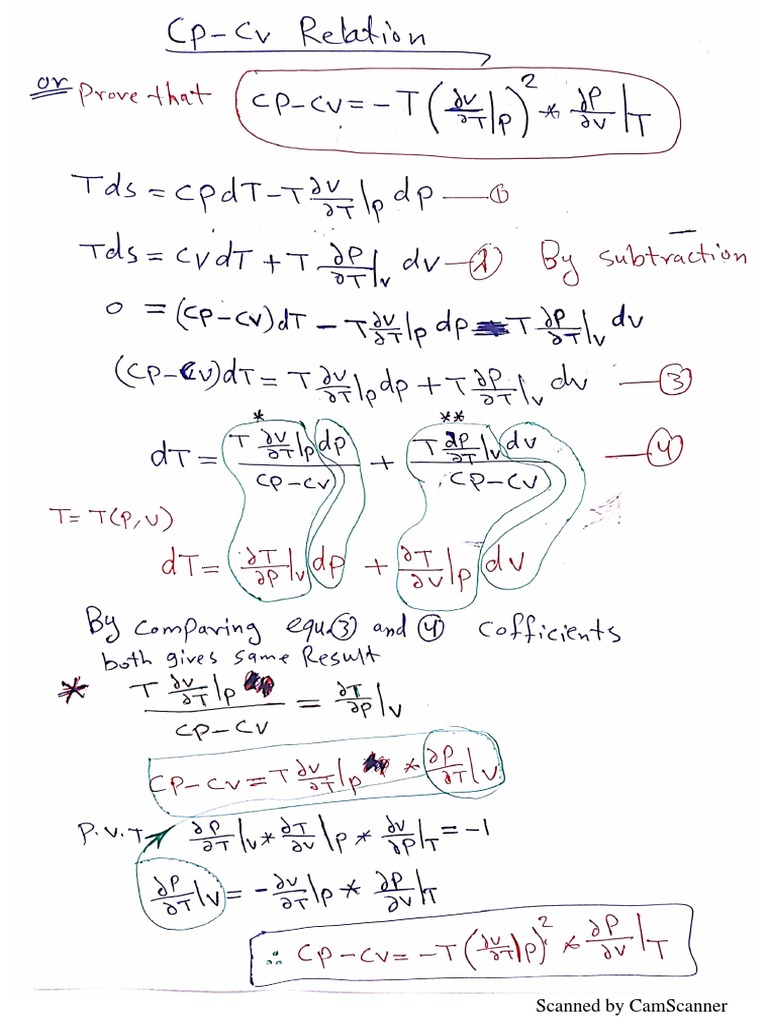 Cp-Cv Relation
or Prove that Cp-Cv = -T(∂v/∂T|p)² * ∂P/∂v|T
Tds = CpdT - T ∂v/∂T|p dp —①
Tds = CvdT + T ∂P/∂T|v dv —② By subtraction
0 = (Cp-Cv)dT - T ∂v/∂T|p dp - T ∂P/∂T|v dv
(Cp-Cv)dT = T ∂v/∂T|p dp + T ∂P/∂T|v dv —③
* **
dT = T ∂v/∂T|p dp / Cp-Cv + T ∂P/∂T|v dv / Cp-Cv —④
T = T(P,v)
dT = ∂T/∂P|v dp + ∂T/∂v|p dv
By comparing equ.③ and ④ cofficients
both gives same Result
* T ∂v/∂T|p / Cp-Cv = ∂T/∂P|v
Cp-Cv = T ∂v/∂T|p * ∂P/∂T|v
P.v.T → ∂P/∂T|v * ∂T/∂v|p * ∂v/∂P|T = -1
∂P/∂T|v = -∂v/∂T|p * ∂P/∂v|T
∴ Cp-Cv = -T(∂v/∂T|p)² * ∂P/∂v|T
Scanned by CamScanner